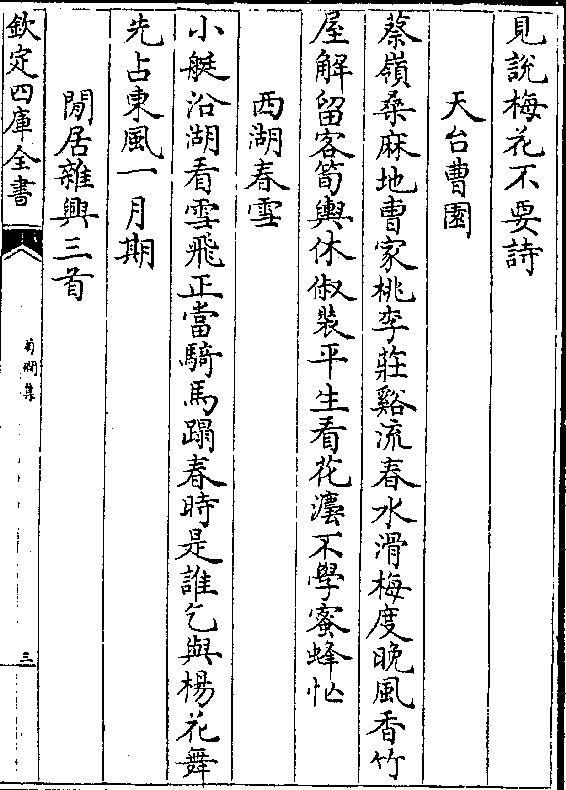 見說梅花不要詩
天台曹園
蔡嶺桑麻地曹家桃李莊谿流春水滑梅度晚風香竹
屋解留客筍輿休俶裝平生看花不學蜜蜂忙
西湖春雪
小艇沿湖看雪飛正當騎馬蹋春時是誰乞與楊花舞
先占東風一月期
閒居雜興三首
欽定四庫全書
菊磵集
三